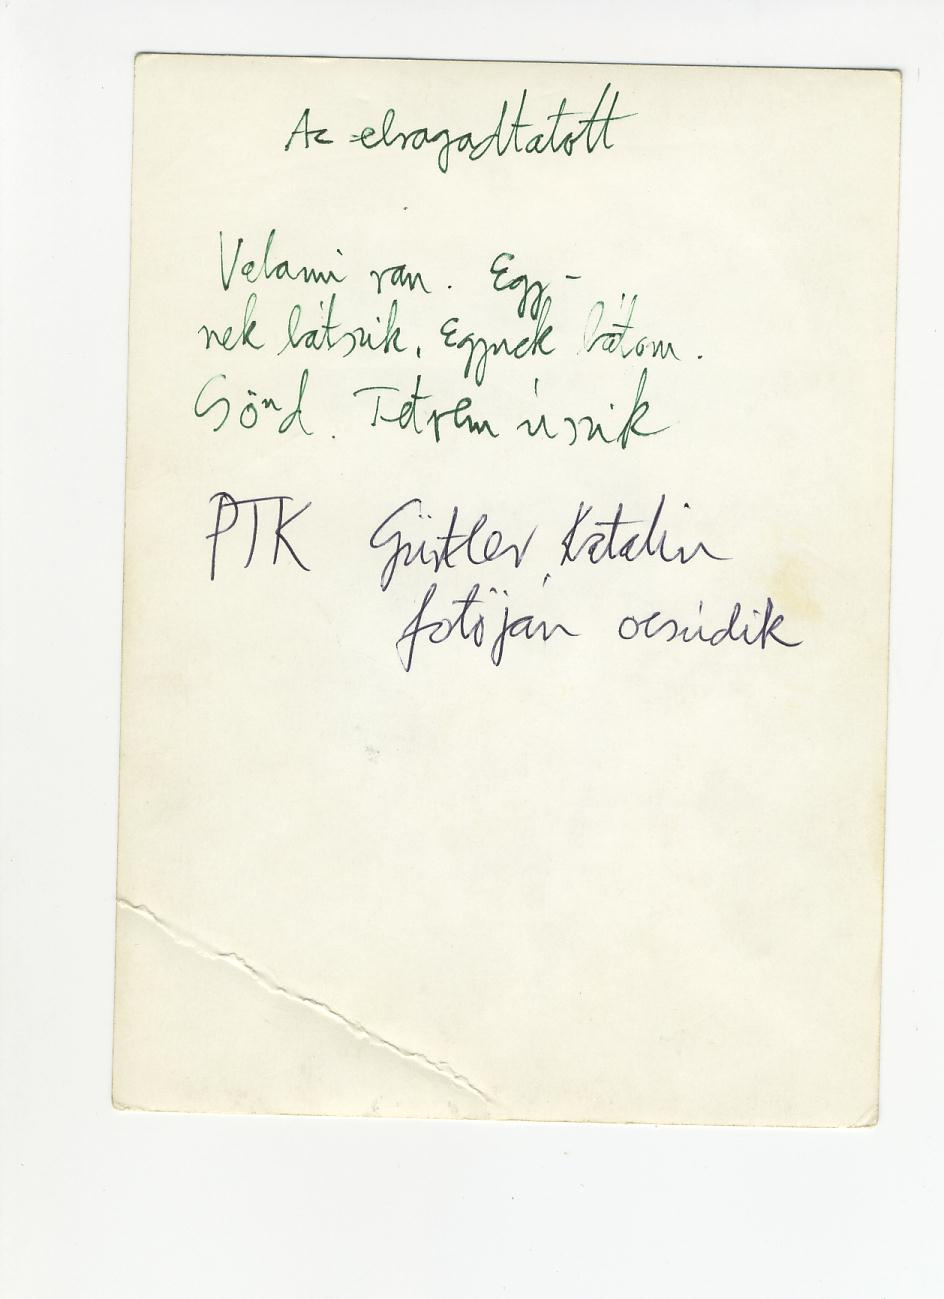 Az elragadtatott
Valami van. Egy-
nek látszik. Egynek látom.
Csönd. Tetvem úszik
PTK Gürtler Katalin
fotóján ocsúdik